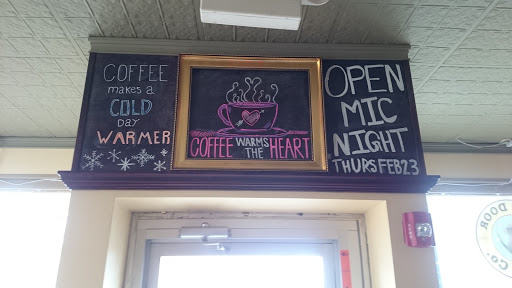 COFFEE
makes a
COLD
day
WARMER
COFFEE WARMS THE HEART
OPEN
MIC
NIGHT
THURS FEB 23
DOOR
Co.